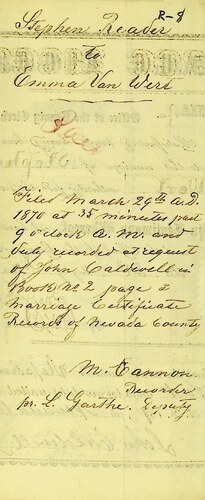 R-8
Stephen Reader
to
Emma Van Wert
Filed March 29th A.D.
1870 at 35 minutes past
9 o'clock A.M. and
duly recorded at request
of John Caldwell in
Book No 2 page 2
Marriage Certificate
Records of Nevada County
M. Cannon
Recorder
pr. L. Garthe. Deputy